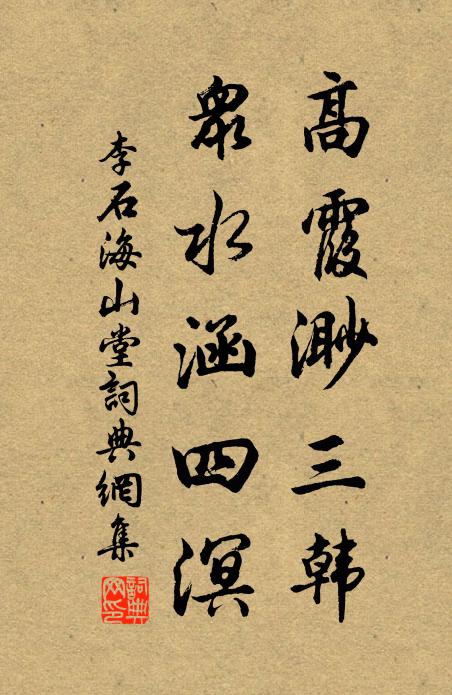 高霞渺三韩
眾水涵四溟
李石海山堂詞典網集
詞典网印